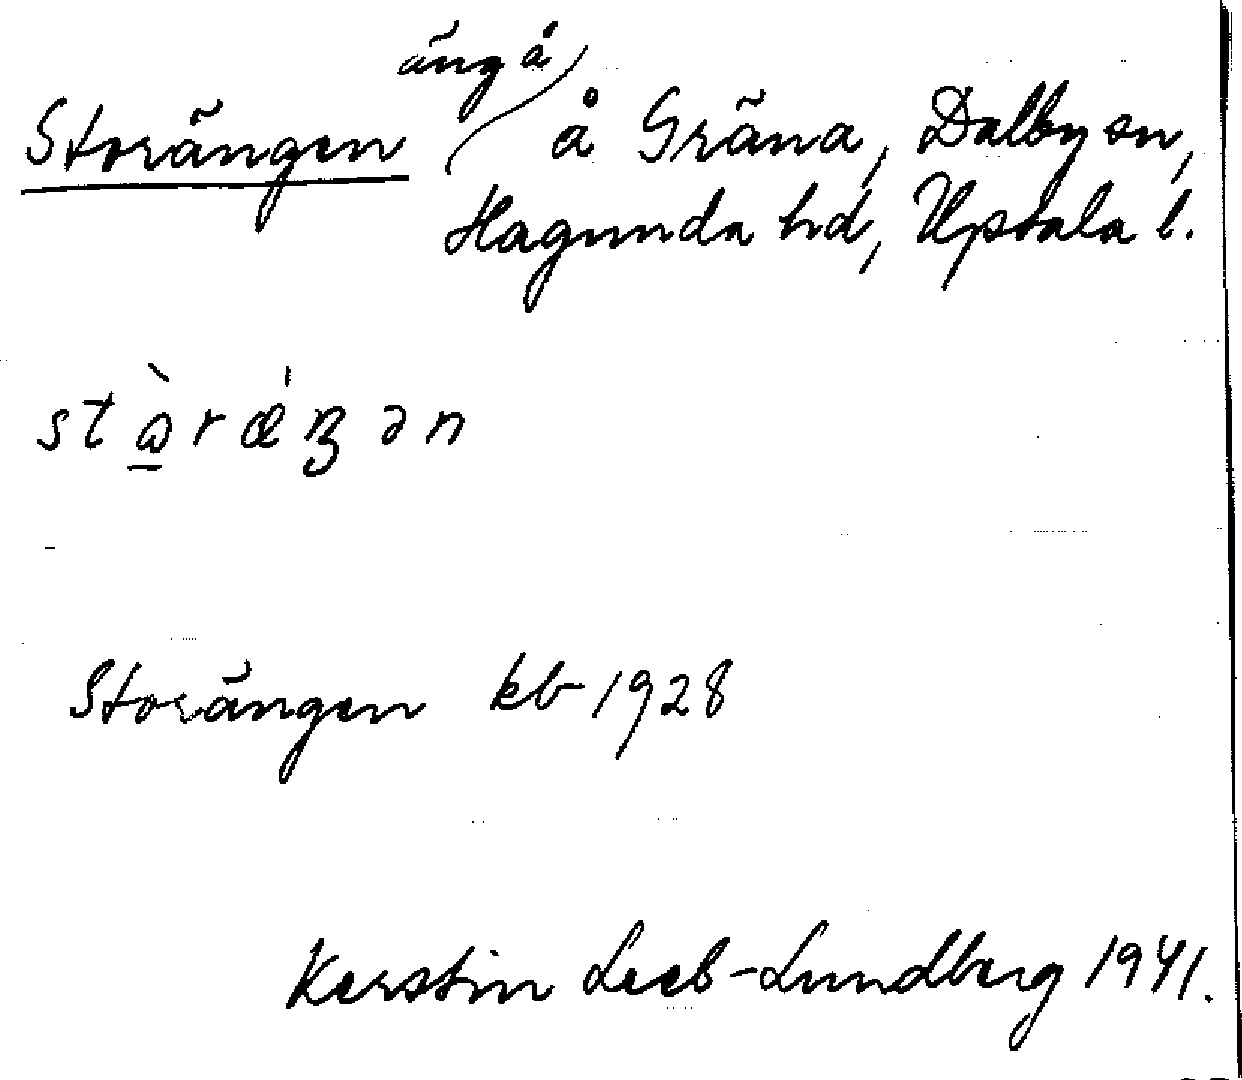 äng å
Storängen å Gräna, Dalby sn,
Hagunda hd, Uppsala l.
stɷ̠̀ræ̍ŋən
Storängen kb 1928
Kerstin Leeb-Lundberg 1941.